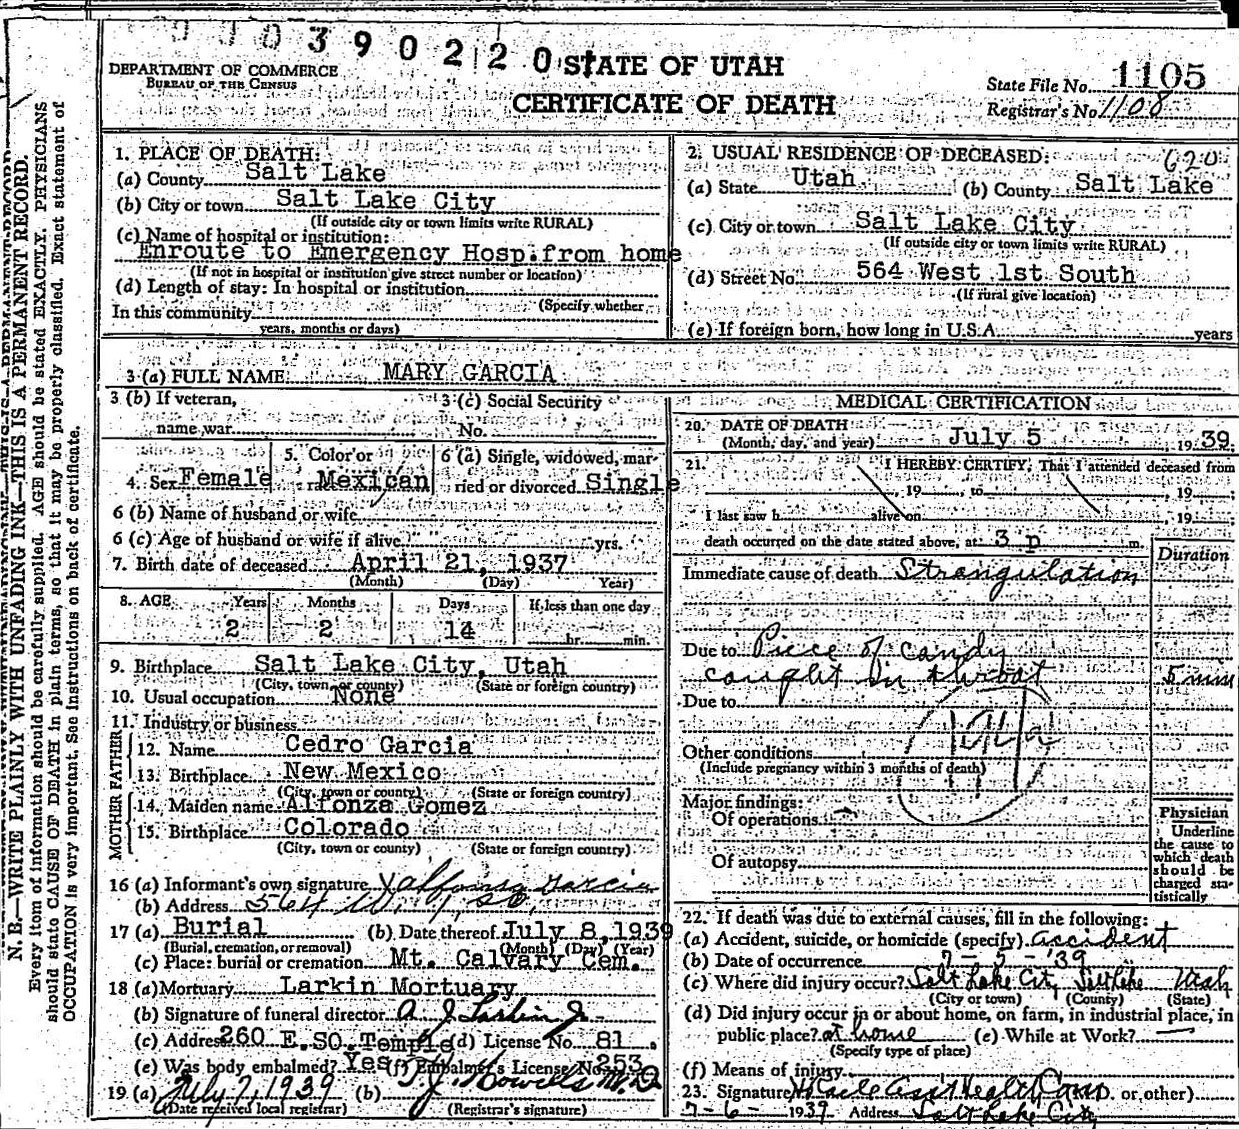 390220
STATE OF UTAH
CERTIFICATE OF DEATH
DEPARTMENT OF COMMERCE
BUREAU OF THE CENSUS
State File No. 1105
Registrar's No. 1108
N. B.—WRITE PLAINLY WITH UNFADING INK—THIS IS A PERMANENT RECORD.
Every item of information should be carefully supplied. AGE should be stated EXACTLY. PHYSICIANS
should state CAUSE OF DEATH in plain terms, so that it may be properly classified. Exact statement of
OCCUPATION is very important. See instructions on back of certificate.
1. PLACE OF DEATH:
(a) County Salt Lake
(b) City or town Salt Lake City
(If outside city or town limits write RURAL)
(c) Name of hospital or institution:
Enroute to Emergency Hosp.from home
(If not in hospital or institution give street number or location)
(d) Length of stay: In hospital or institution
(Specify whether
In this community
years, months or days)
2. USUAL RESIDENCE OF DECEASED: 620
(a) State Utah (b) County Salt Lake
(c) City or town Salt Lake City
(If outside city or town limits write RURAL)
(d) Street No. 564 West 1st South
(If rural give location)
(e) If foreign born, how long in U.S.A. years
3 (a) FULL NAME MARY GARCIA
3 (b) If veteran, 3 (c) Social Security
name war No.
4. Sex Female 5. Color or race Mexican 6 (a) Single, widowed, married or divorced Single
6 (b) Name of husband or wife
6 (c) Age of husband or wife if alive yrs.
7. Birth date of deceased April 21, 1937
(Month) (Day) Year)
8. AGE Years Months Days If less than one day
2 2 14 hr. min.
9. Birthplace Salt Lake City, Utah
(City, town or county) (State or foreign country)
10. Usual occupation None
11. Industry or business
FATHER
12. Name Cedro Garcia
13. Birthplace New Mexico
(City, town or county) (State or foreign country)
MOTHER
14. Maiden name Alfonza Gomez
15. Birthplace Colorado
(City, town or county) (State or foreign country)
16 (a) Informant's own signature X Alfonsa Garcia
(b) Address 564 W. 1, So.
17 (a) Burial (b) Date thereof July 8, 1939
(Burial, cremation, or removal) (Month) (Day) (Year)
(c) Place: burial or cremation Mt. Calvary Cem.
18 (a) Mortuary Larkin Mortuary
(b) Signature of funeral director A. J. Larkin Jr.
(c) Address 260 E. SO. Temple (d) License No. 81
(e) Was body embalmed? Yes (f) Embalmer's License No. 253
19 (a) July 7, 1939 (b) T. J. Howells M.D.
(Date received local registrar) (Registrar's signature)
MEDICAL CERTIFICATION
20. DATE OF DEATH
(Month, day, and year) July 5, 1939.
21. I HEREBY CERTIFY, That I attended deceased from
, 19 , to , 19 ;
I last saw h alive on , 19 ;
death occurred on the date stated above, at 3 p m.
Duration
Immediate cause of death Strangulation
Due to Piece of candy
caught in throat 5 min
Due to
Other conditions
(Include pregnancy within 3 months of death)
Major findings:
Of operations
Of autopsy
Physician
Underline
the cause to
which death
should be
charged sta-
tistically
22. If death was due to external causes, fill in the following:
(a) Accident, suicide, or homicide (specify) accident
(b) Date of occurrence 7-5-'39
(c) Where did injury occur? Salt Lake City Salt Lake Utah
(City or town) (County) (State)
(d) Did injury occur in or about home, on farm, in industrial place, in
public place? at home (e) While at Work? —
(Specify type of place)
(f) Means of injury
23. Signature Health Com (M.D. or other)
7-6- 1939 Address Salt Lake City